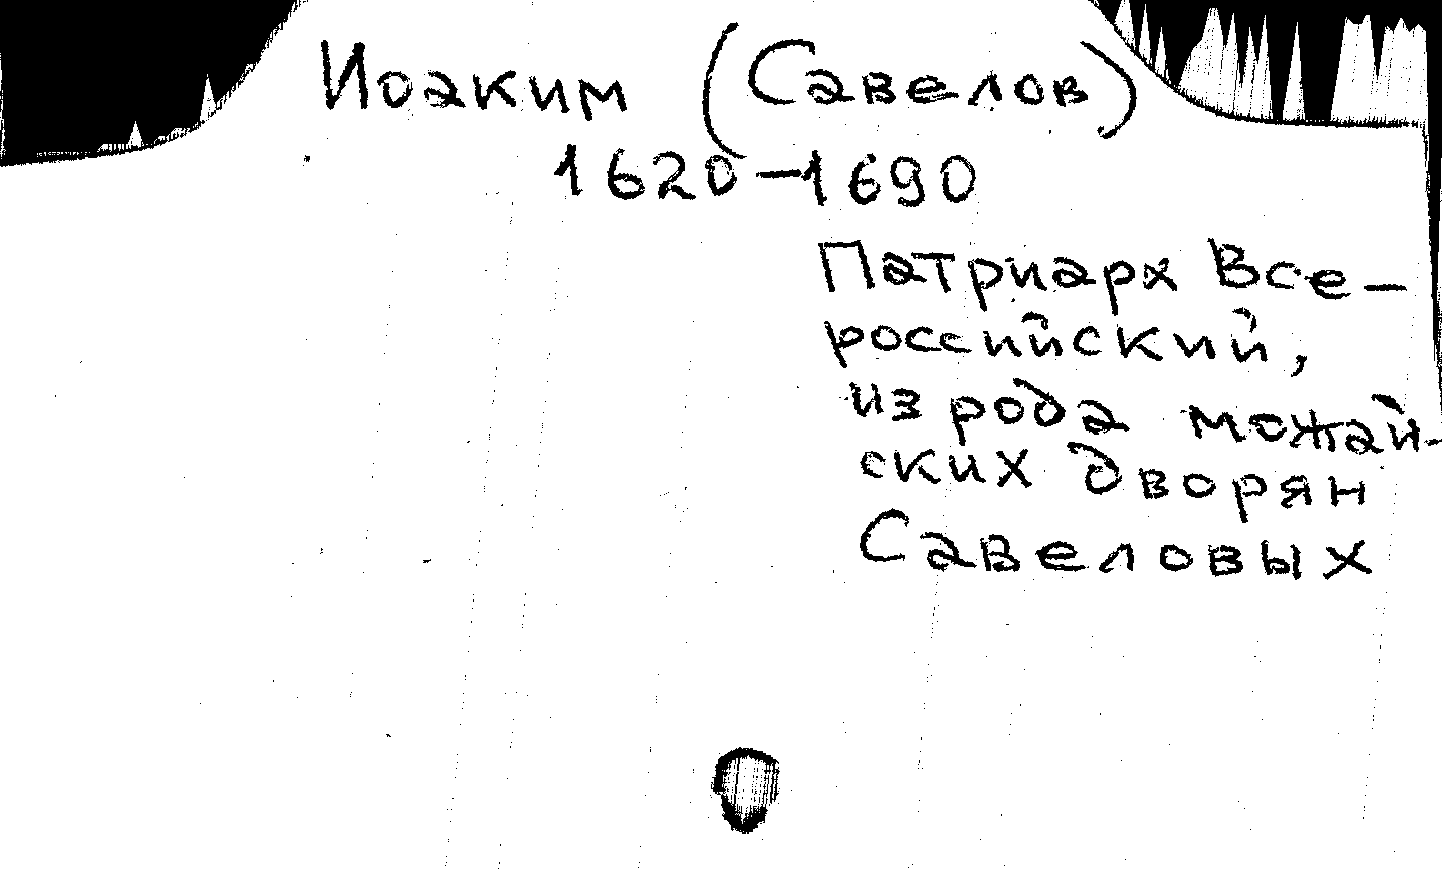 Иоаким (Савелов)
1620-1690
Патриарх Все-
российский,
из рода можай-
ских дворян
Савеловых